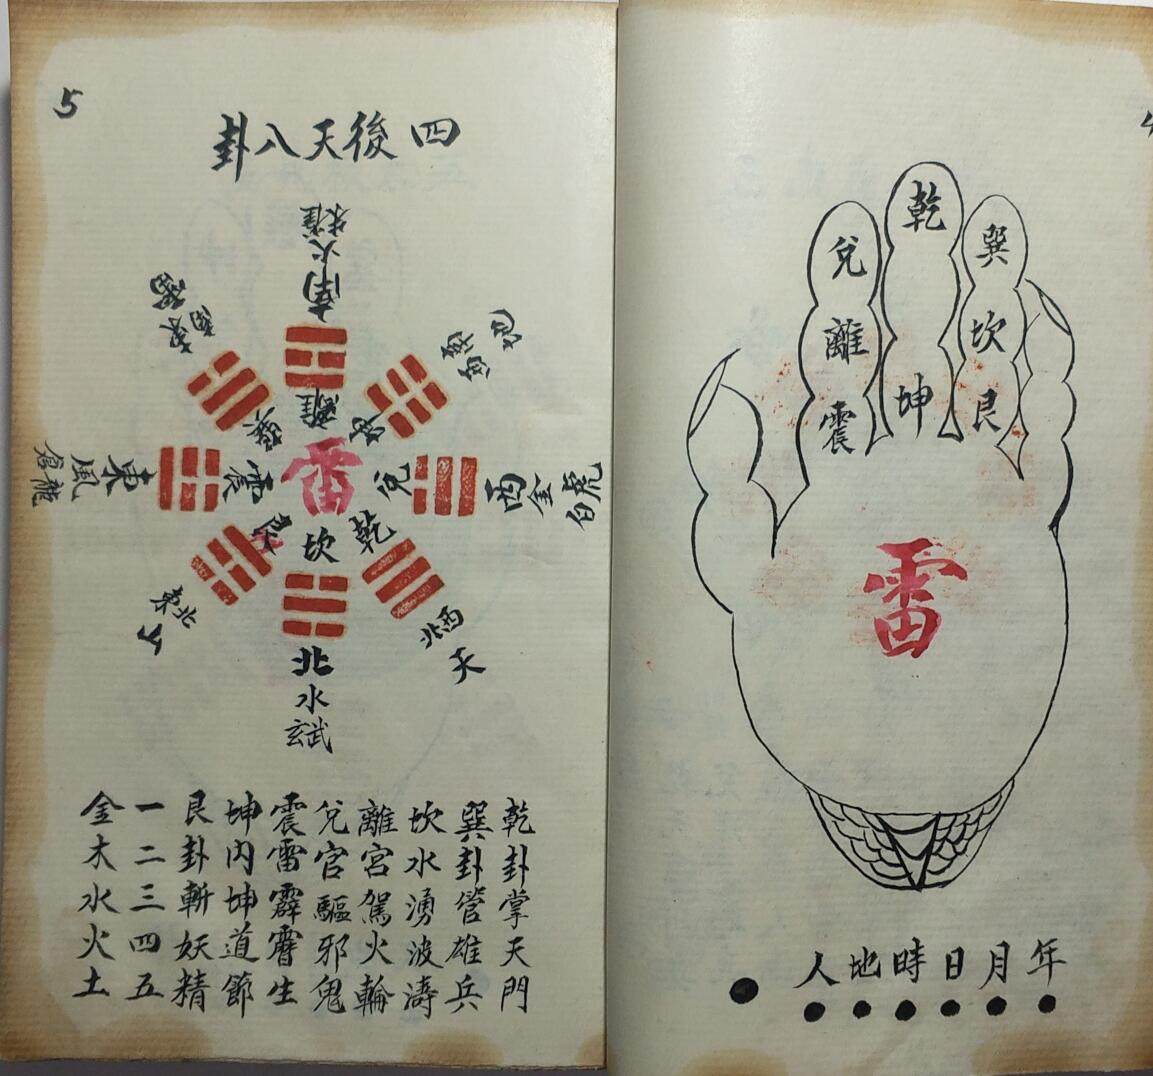 4
乾
兌
巽
離
坎
震
坤
艮
雷
年月日時地人
5
四後天八卦
朱雀
火
南
離
東南
巽
西南
地
坤
東
風
倉龍
震
雷
兌
西
金
白虎
艮
東北
坎
乾
西北
天
北
水
玄武
乾卦掌天門
巽卦管雄兵
坎水湧波濤
離宮駕火輪
兌官驅邪鬼
震雷霹靂生
坤內坤道節
艮卦斬妖精
一二三四五
金木水火土